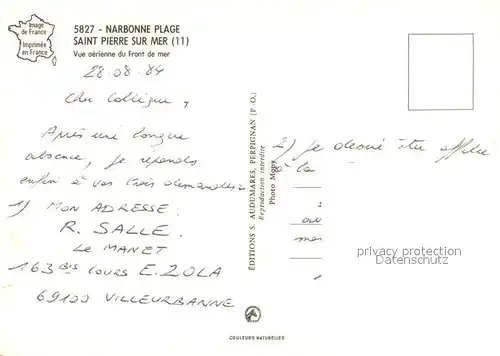 Image
de France
Imprimée
en France
5827 - NARBONNE PLAGE
SAINT PIERRE SUR MER (11)
Vue aérienne du Front de mer
28.08.84
Cher Collègue,
Après une longue
absence, je réponds
enfin à vos trois demandes:
1) MON ADRESSE:
R. SALLE.
Le MANET
163 Bis Cours E. ZOLA
69100 VILLEURBANNE
ÉDITIONS S. AUDUMARES, PERPIGNAN (P.-O.)
Reproduction interdite
Photo Mopy
2) Je désire être affilié
à la
privacy protection
Datenschutz
COULEURS NATURELLES